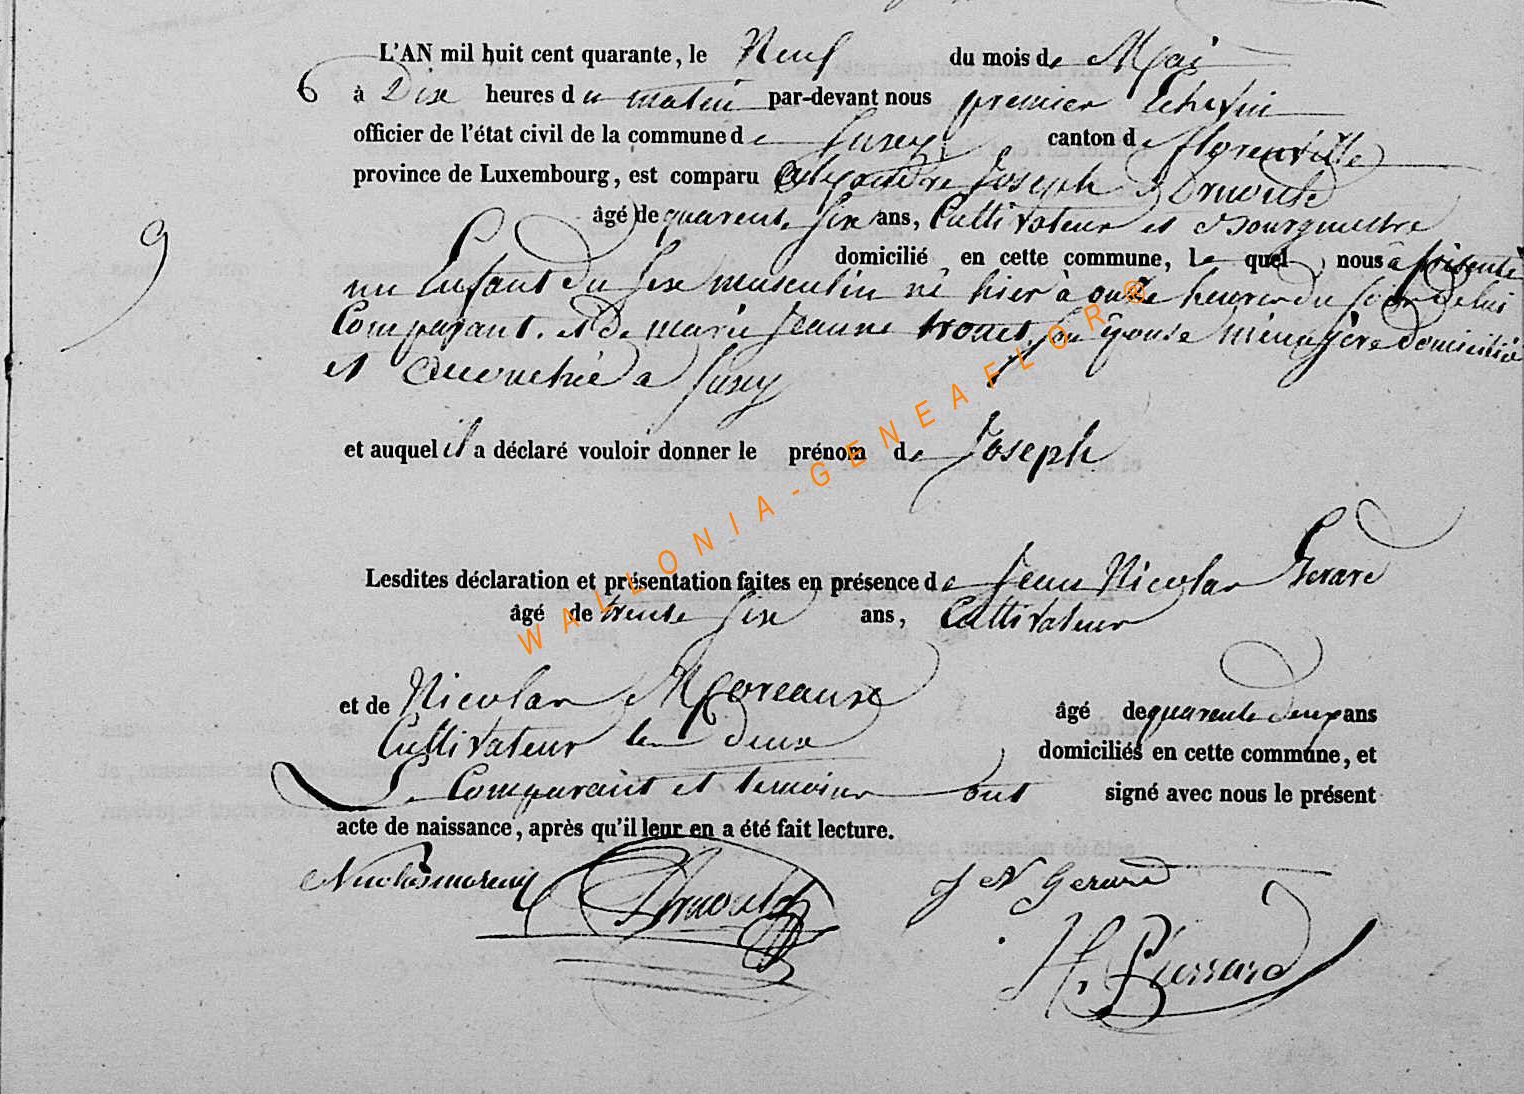 L'AN mil huit cent quarante, le Neuf du mois de Mai
6 à Dix heures du matin par-devant nous premier Echevin
officier de l'état civil de la commune de Suxey canton de florenville
province de Luxembourg, est comparu Alexandre Joseph Druoult
âgé de quarente six ans, Cultivateur et Bourgmestre
9 domicilié en cette commune, lequel nous a présenté
un Enfant du sexe masculin né hier à onze heures du soir de lui
Comparant. et de marie jeanne trouet, son épouse ménagère domiciliée
et accouchée a Suxey
et auquel il a déclaré vouloir donner le prénom de Joseph
Lesdites déclaration et présentation faites en présence de Jean Nicolas Gerard
âgé de trente six ans, Cultivateur
et de Nicolas Moreaux âgé de quarente deux ans
Cultivateur les deux domiciliés en cette commune, et
Le Comparant et temoins ont signé avec nous le présent
acte de naissance, après qu'il leur en a été fait lecture.
Nicolas moreaux J N Gerard
H. Pierrard
WALLONIA-GENEAFLOR®